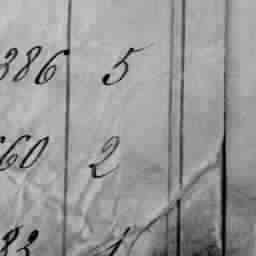 386 5
60 2
33 1